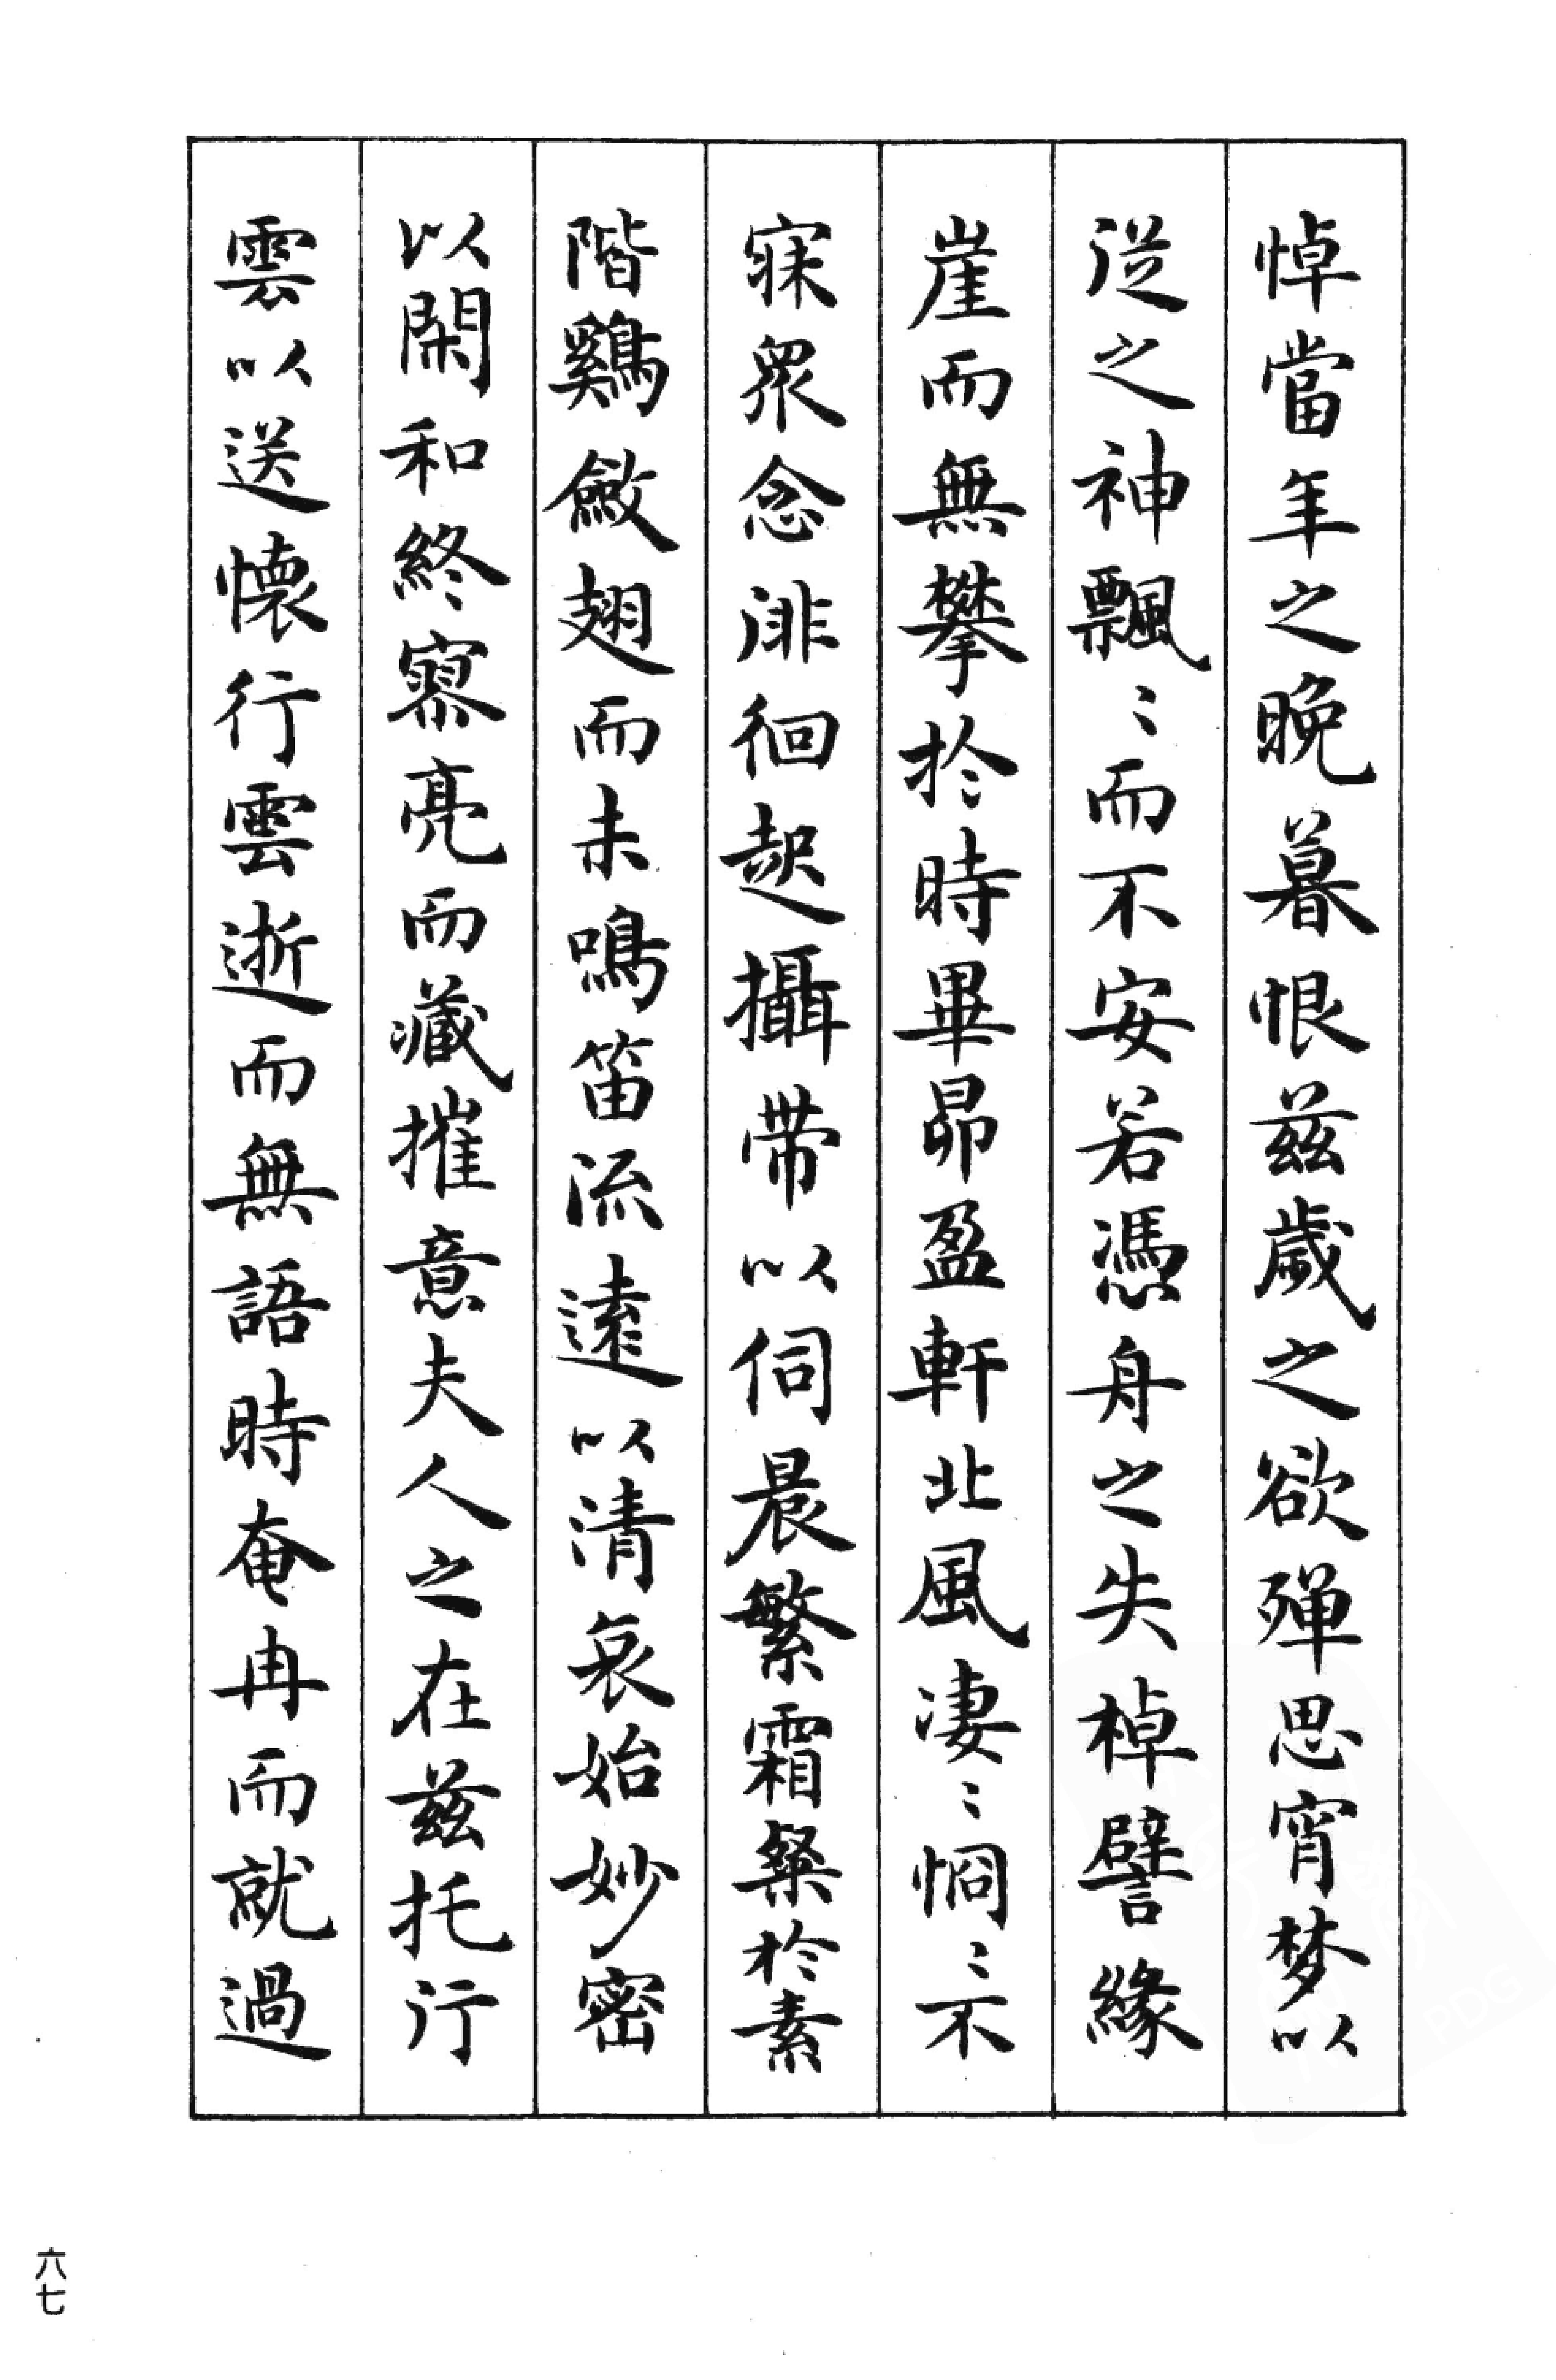 悼當年之晚暮恨兹歲之欲殫思宵梦以
従之神飄〻而不安若憑舟之失棹譬緣
崖而無攀於時畢昴盈軒北風凄〻惘〻不
寐衆念徘徊起攝带以伺晨繁霜粲於素
階鷄斂翅而未鳴笛流遠以清哀始妙密
以閑和終寥亮而藏摧意夫人之在兹托行
雲以送懷行雲逝而無語時奄冉而就過
六七